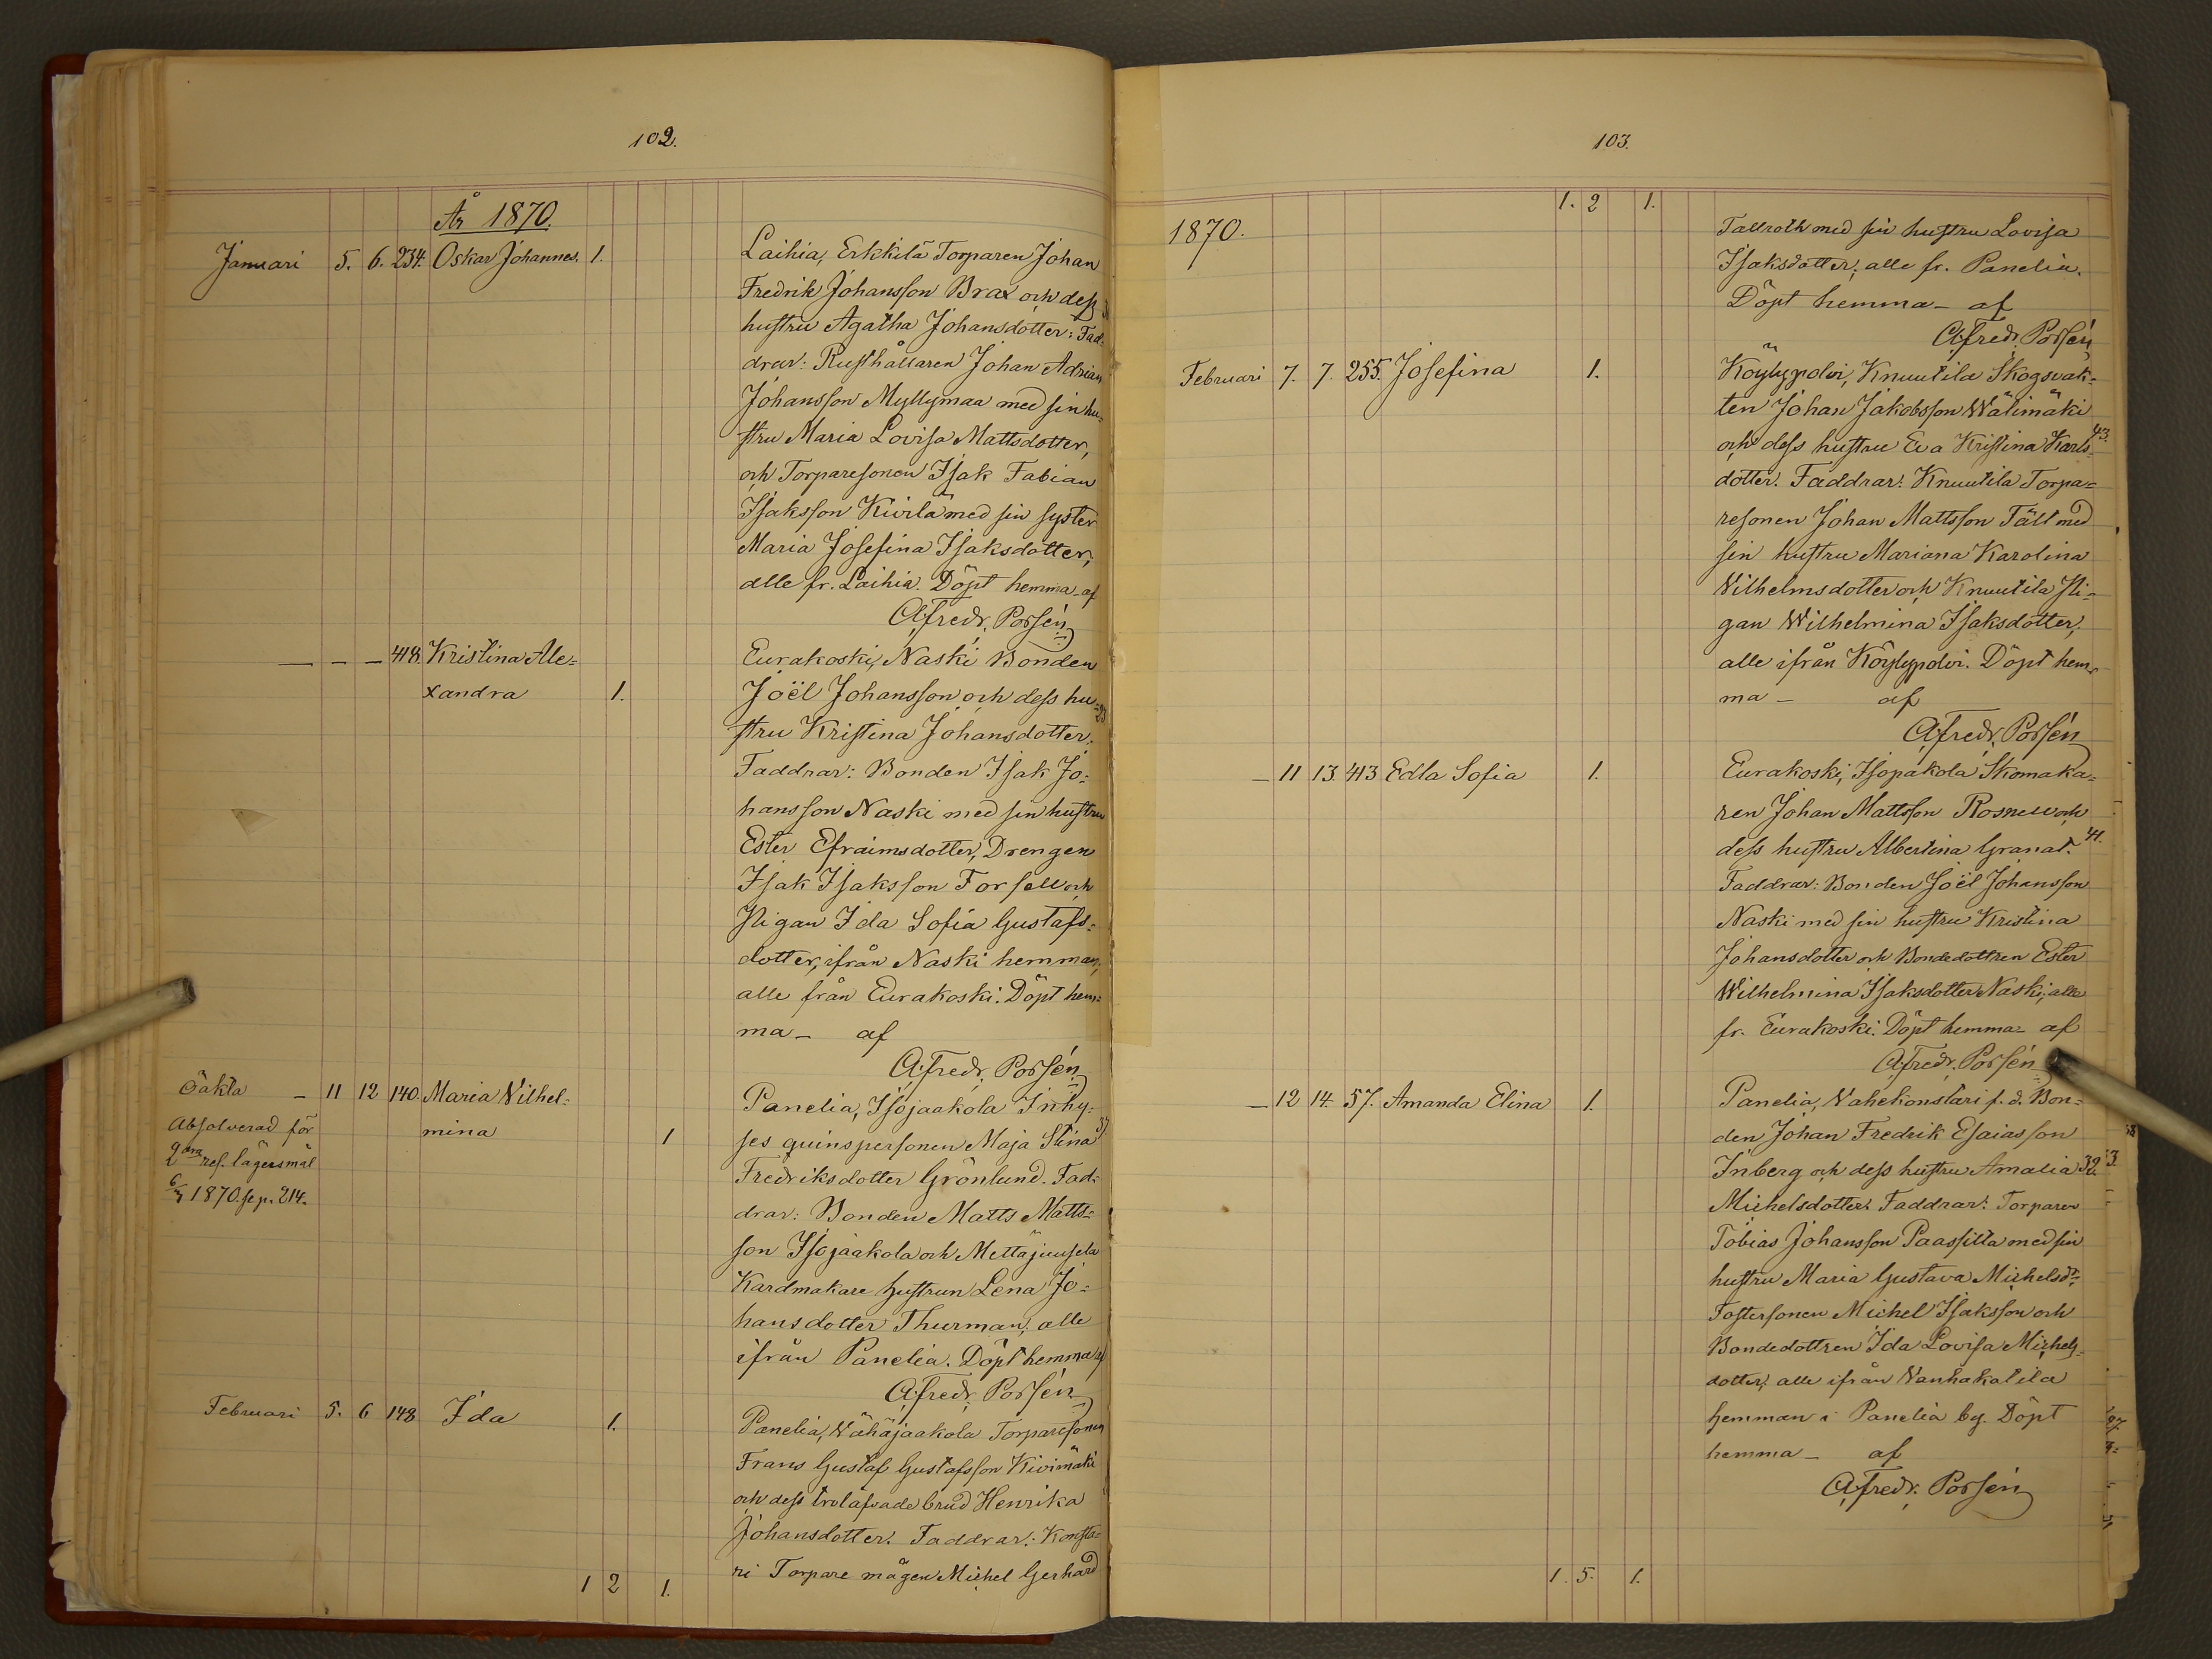 102.
År 1870.
Januari 5. 6. 234. Oskar Johannes. 1. Laihia, Erkkilä Torparen Johan
Fredrik Johansson Brax och dess
hustru Agatha Johansdotter: Fad-
drar: Rusthållaren Johan Adrian
Johansson Myllymaa med sin hu-
stru Maria Lovisa Mattsdotter,
och Torparesonen Isak Fabian
Isaksson Kivilä med sin syster
Maria Josefina Isaksdotter,
alle fr. Laihia. Döpt hemma af
A. Fredr. Porsén
— — — 418. Kristina Ale= Eurakoski, Naski Bonden
xandra 1. Joël Johansson och dess hu-
stru Kristina Johansdotter.
Faddrar: Bonden Isak Jo-
hansson Naski med sin hustru
Ester Efraimsdotter, Drengen
Isak Isaksson Forsell och
Pigan Ida Sofia Gustafs=
dotter, ifrån Naski hemman,
alle från Eurakoski. Döpt hem=
ma — af
A. Fredr. Porsén
Oäkta — 11 12 140. Maria Vilhel= Panelia, Isojaakola Inhy-
Absolverad för mina 1 ses qvinspersonen Maja Stina
2dra res. lägersmål Fredriksdotter Grönlund. Fad-
6/3 1870. se p. 214. drar: Bonden Matts Matts=
son Isojaakola och Mettäjuusela
Kardmakare hustrun Lena Jo=
hansdotter Thurman, alle
ifrån Panelia. Döpt hemma af
A. Fredr. Porsén
Februari 5. 6 148 Ida 1. Panelia, Vähäjaakola Torparesonen
Frans Gustaf Gustafsson Kivimäki
och dess trolåfvade brud Henrika
Johansdotter. Faddrar: Konsta-
ri Torpare mågen Michel Gerhard
1 2 1.
103.
1. 2 1.
1870. Tallroth med sin hustru Lovisa
Isaksdotter, alle fr. Panelia.
Döpt hemma — af
A. Fredr. Porsén
Februari 7. 7. 255. Josefina 1. Köylypolvi, Knuutila Skogsvak-
ten Johan Jakobsson Wälimäki
och dess hustru Eva Kristina Karls- 43.
dotter. Faddrar: Knuutila Torpa-
resonen Johan Mattsson Fält med
sin hustru Mariana Karolina
Vilhelmsdotter och Knuutila Pi-
gan Wilhelmina Isaksdotter,
alle ifrån Köylypolvi. Döpt hem-
ma — af
A. Fredr. Porsén
— 11 13. 413 Edla Sofia 1. Eurakoski, Isopakola Skomaka-
ren Johan Mattsson Rosnell och
dess hustru Albertina Granat. 41.
Faddrar: Bonden Joël Johansson
Naski med sin hustru Kristina
Johansdotter och Bondedottren Ester
Wilhelmina Isaksdotter Naski, alle
fr. Eurakoski. Döpt hemma — af
A. Fredr. Porsén
— 12 14. 57. Amanda Elina 1. Panelia, Vahekonstari f. d. Bon-
den Johan Fredrik Esaiasson
Inberg och dess hustru Amalia 32.
Michelsdotter. Faddrar: Torparen
Tobias Johansson Paassilta med sin
hustru Maria Gustava Michelsdr.
Fostersonen Michel Isaksson och
Bondedottren Ida Lovisa Michels-
dotter, alle ifrån Vanhakatila
hemman i Panelia by. Döpt
hemma — af
A. Fredr. Porsén
1. 5. 1.